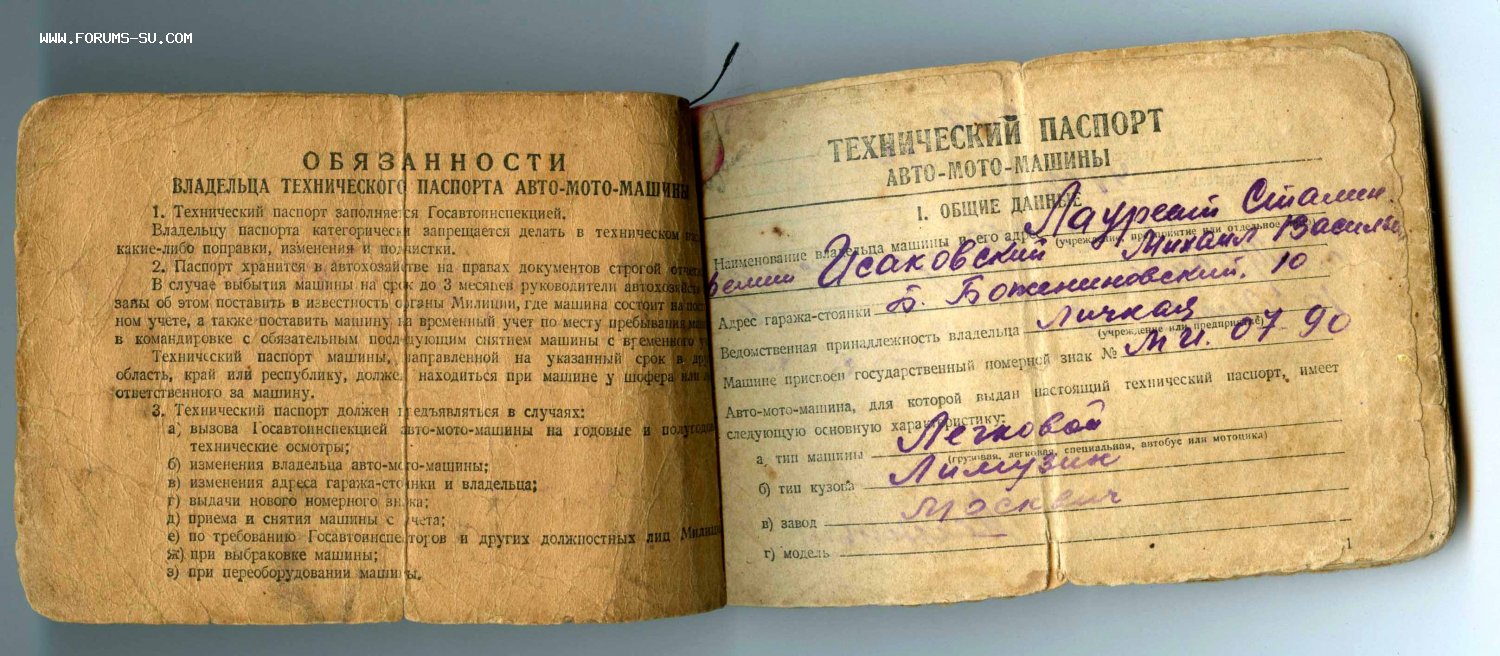 WWW.FORUMS-SU.COM
ОБЯЗАННОСТИ
ВЛАДЕЛЬЦА ТЕХНИЧЕСКОГО ПАСПОРТА АВТО-МОТО-МАШИНЫ
1. Технический паспорт заполняется Госавтоинспекцией.
Владельцу паспорта категорически запрещается делать в техническом
какие-либо поправки, изменения и подчистки.
2. Паспорт хранится в автохозяйстве на правах документов строгой
В случае выбытия машины на срок до 3 месяцев руководители
заны об этом поставить в известность органы Милиции, где машина состоит на
ном учете, а также поставить машину на временный учет по месту пребывания
в командировке с обязательным последующим снятием машины с временного
Технический паспорт машины, направленной на указанный срок в
область, край или республику, должен находиться при машине у шофера или
ответственного за машину.
3. Технический паспорт должен предъявляться в случаях:
а) вызова Госавтоинспекцией авто-мото-машины на годовые и
технические осмотры;
б) изменения владельца авто-мото-машины;
в) изменения адреса гаража-стоянки и владельца;
г) выдачи нового номерного знака;
д) приема и снятия машины с учета;
е) по требованию Госавтоинспекторов и других должностных лиц
ж) при выбраковке машины;
з) при переоборудовании машины.
ТЕХНИЧЕСКИЙ ПАСПОРТ
АВТО-МОТО-МАШИНЫ
I. ОБЩИЕ ДАННЫЕ
Наименование владельца машины и его адрес Лауреат Сталин.
(учреждение, предприятие или отдельное
премии Исаковский Михаил Васильев
Адрес гаража-стоянки Б. Божениновский, 10
Ведомственная принадлежность владельца личная
(учреждение или предприятие)
Машине присвоен государственный номерной знак № МИ. 07-90
Авто-мото-машина, для которой выдан настоящий технический паспорт, имеет
следующую основную характеристику:
а) тип машины Легковой
(грузовая, легковая, специальная, автобус или мотоцикл)
б) тип кузова Лимузин
в) завод Москвич
г) модель
1